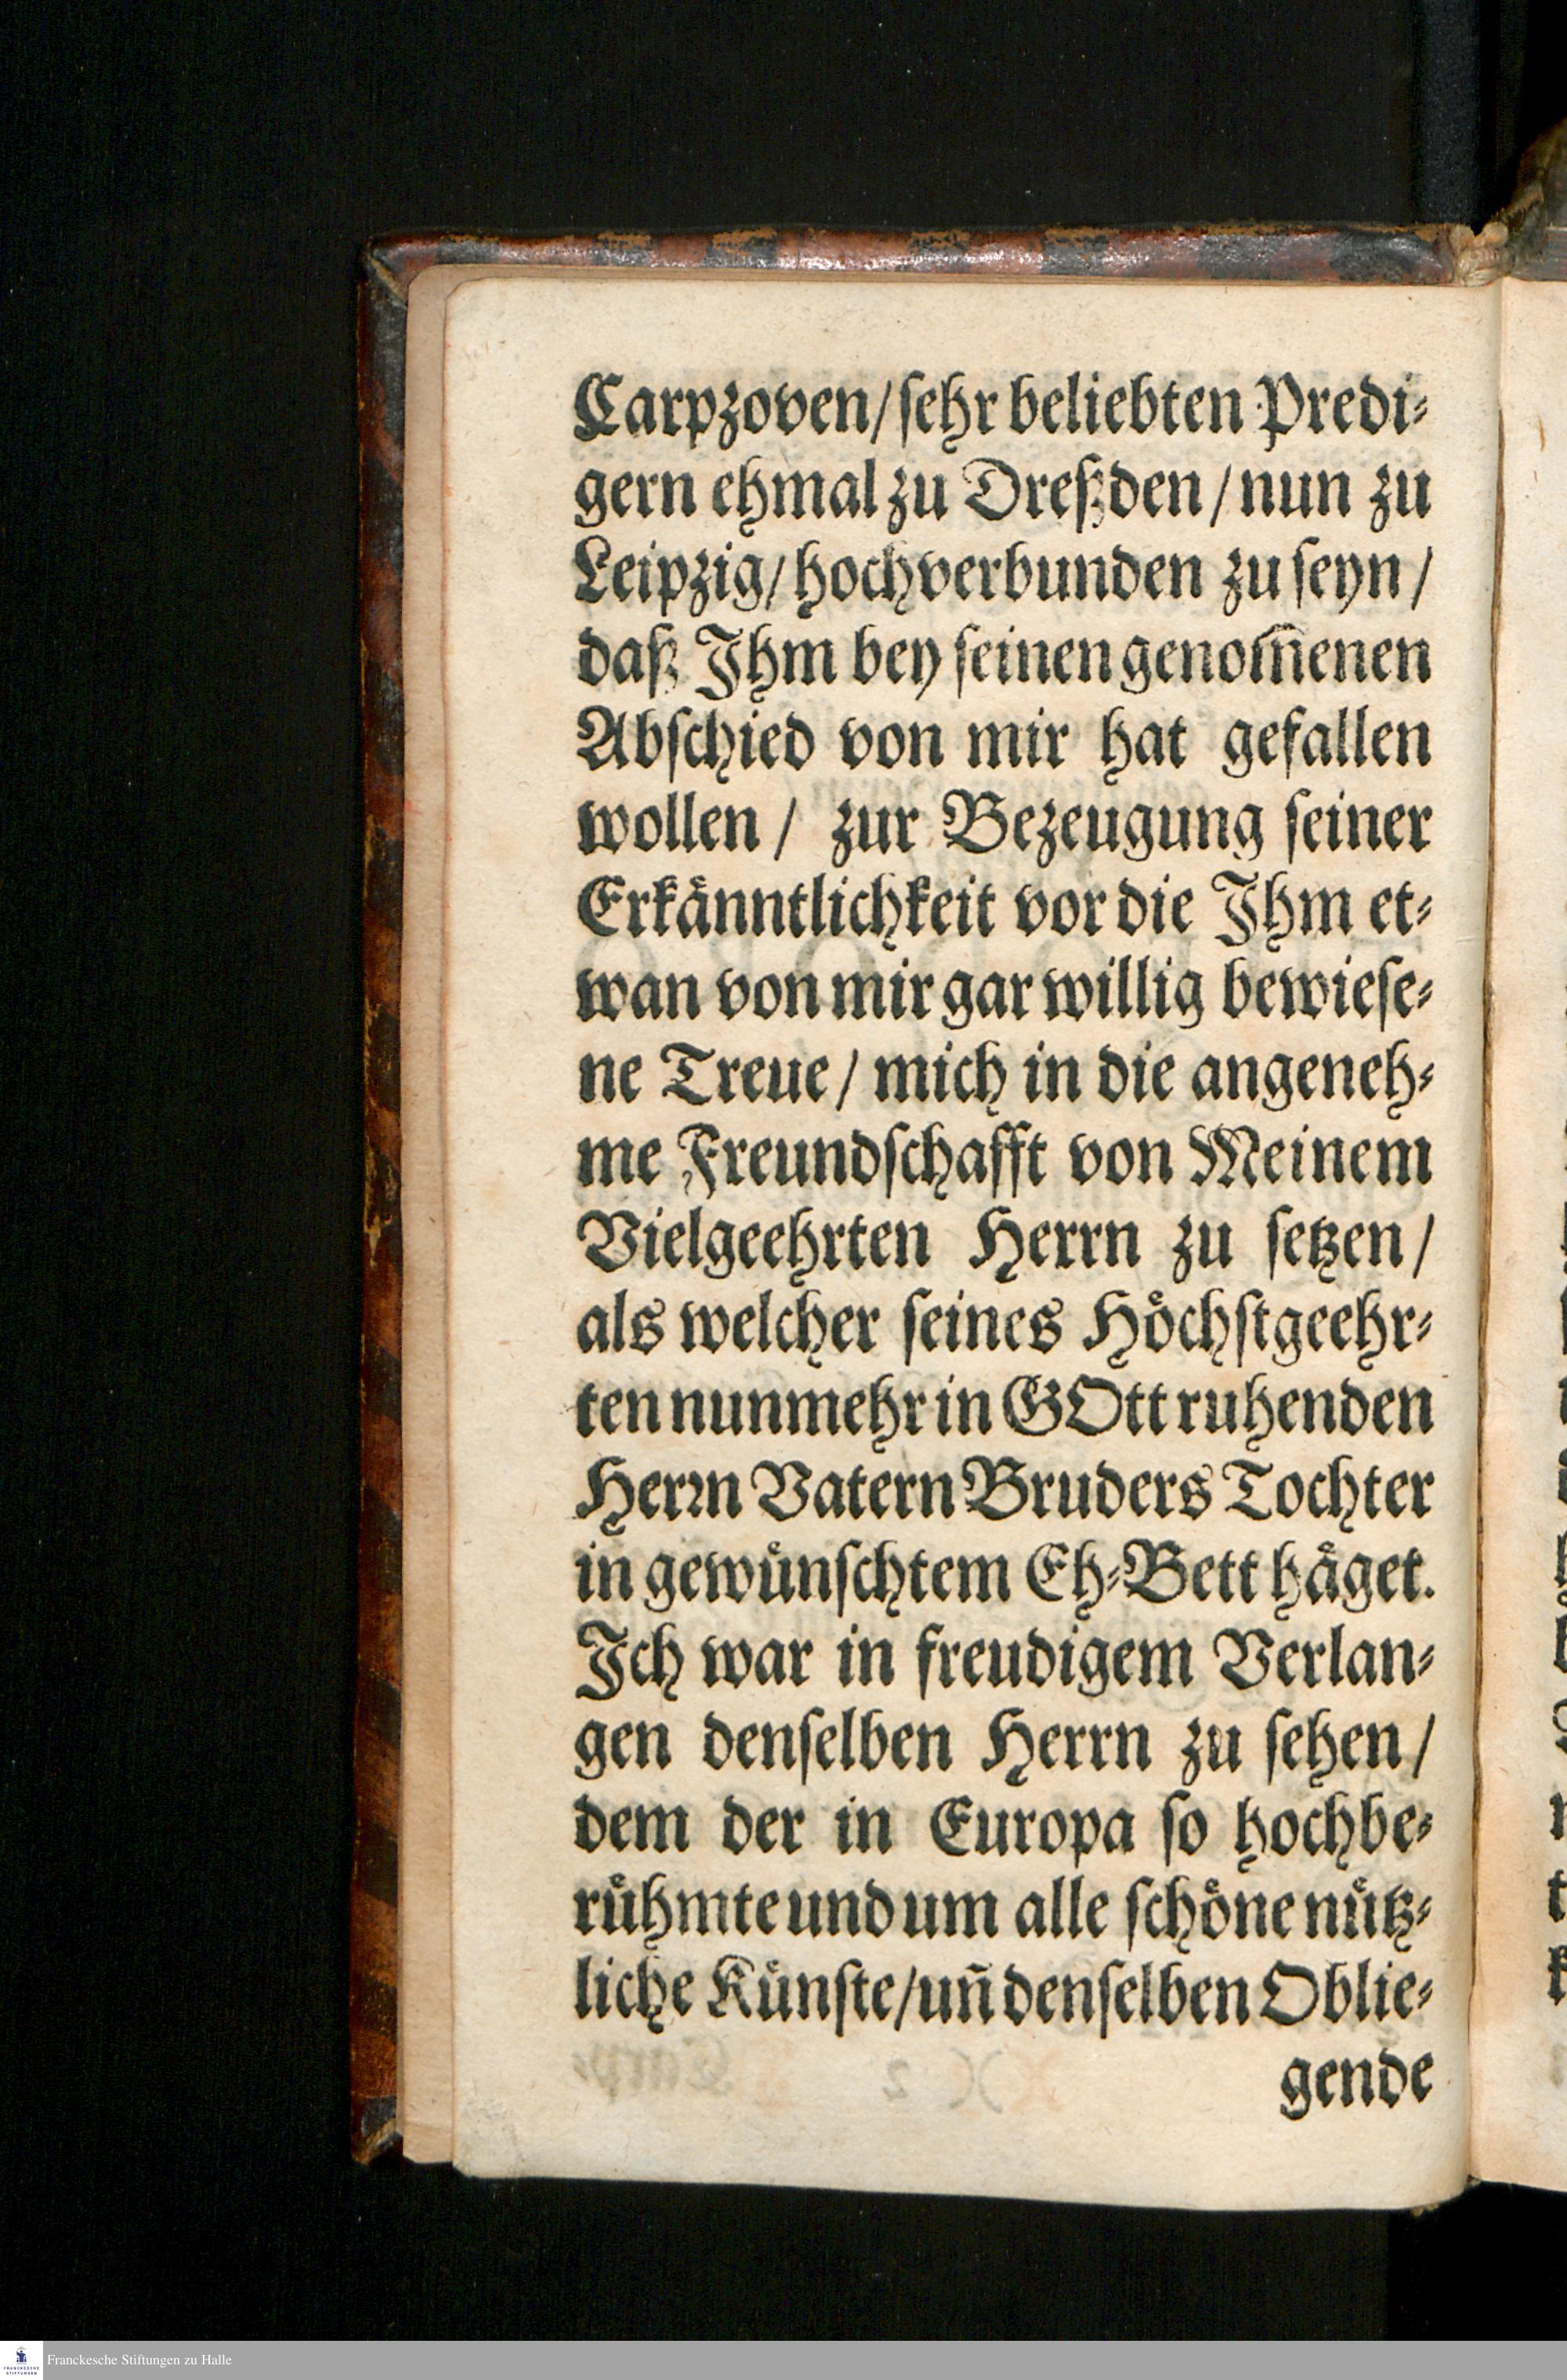 Carpzoven/ ſehr beliebten Predi⸗
gern ehmal zu Dreßden/ nun zu
Leipzig/ hochverbunden zu ſeyn/
daß Jhm bey ſeinen genom̃enen
Abſchied von mir hat gefallen
wollen/ zur Bezeugung ſeiner
Erkaͤnntlichkeit vor die Jhm et⸗
wan von mir gar willig bewieſe⸗
ne Treue/ mich in die angeneh⸗
me Freundſchafft von Meinem
Vielgeehrten Herrn zu ſetzen/
als welcher ſeines Hoͤchſtgeehr⸗
ten nunmehr in GOtt ruhenden
Herꝛn Vatern Bruders Tochter
in gewuͤnſchtem Eh⸗Bett haͤget.
Jch war in freudigem Verlan⸗
gen denſelben Herrn zu ſehen/
dem der in Europa ſo hochbe⸗
ruͤhmte und um alle ſchoͤne nuͤtz⸗
liche Kuͤnſte/ uñ denſelben Oblie⸗
gende
Franckesche Stiftungen zu Halle